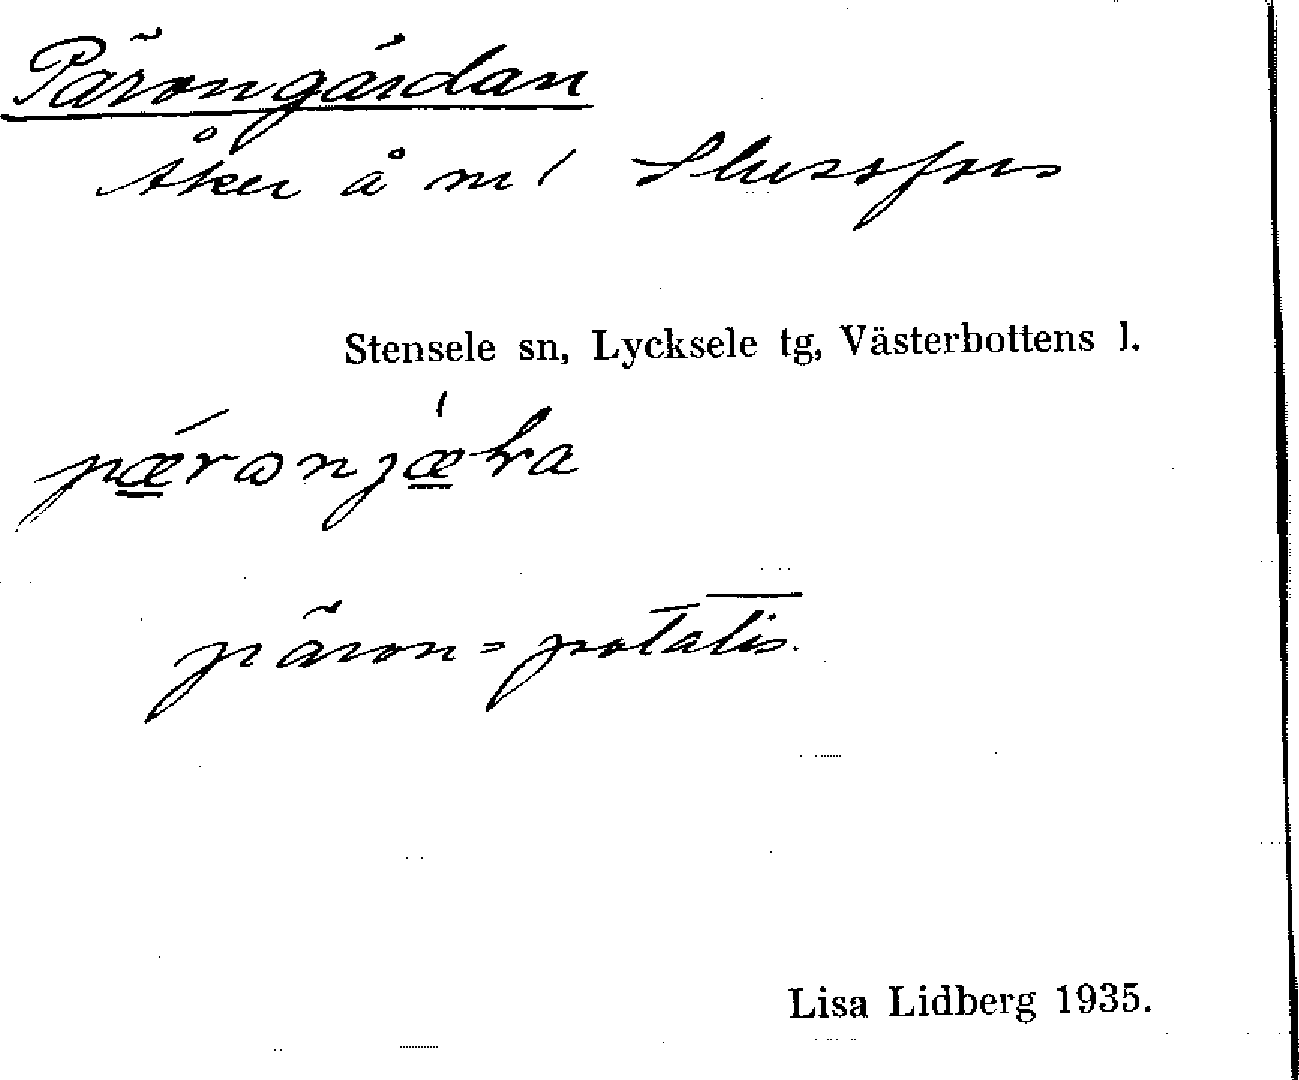 Pärongärdan
Åker å nr 1 Slussfors
Stensele sn, Lycksele tg, Västerbottens l.
päron = potatis.
Lisa Lidberg 1935.